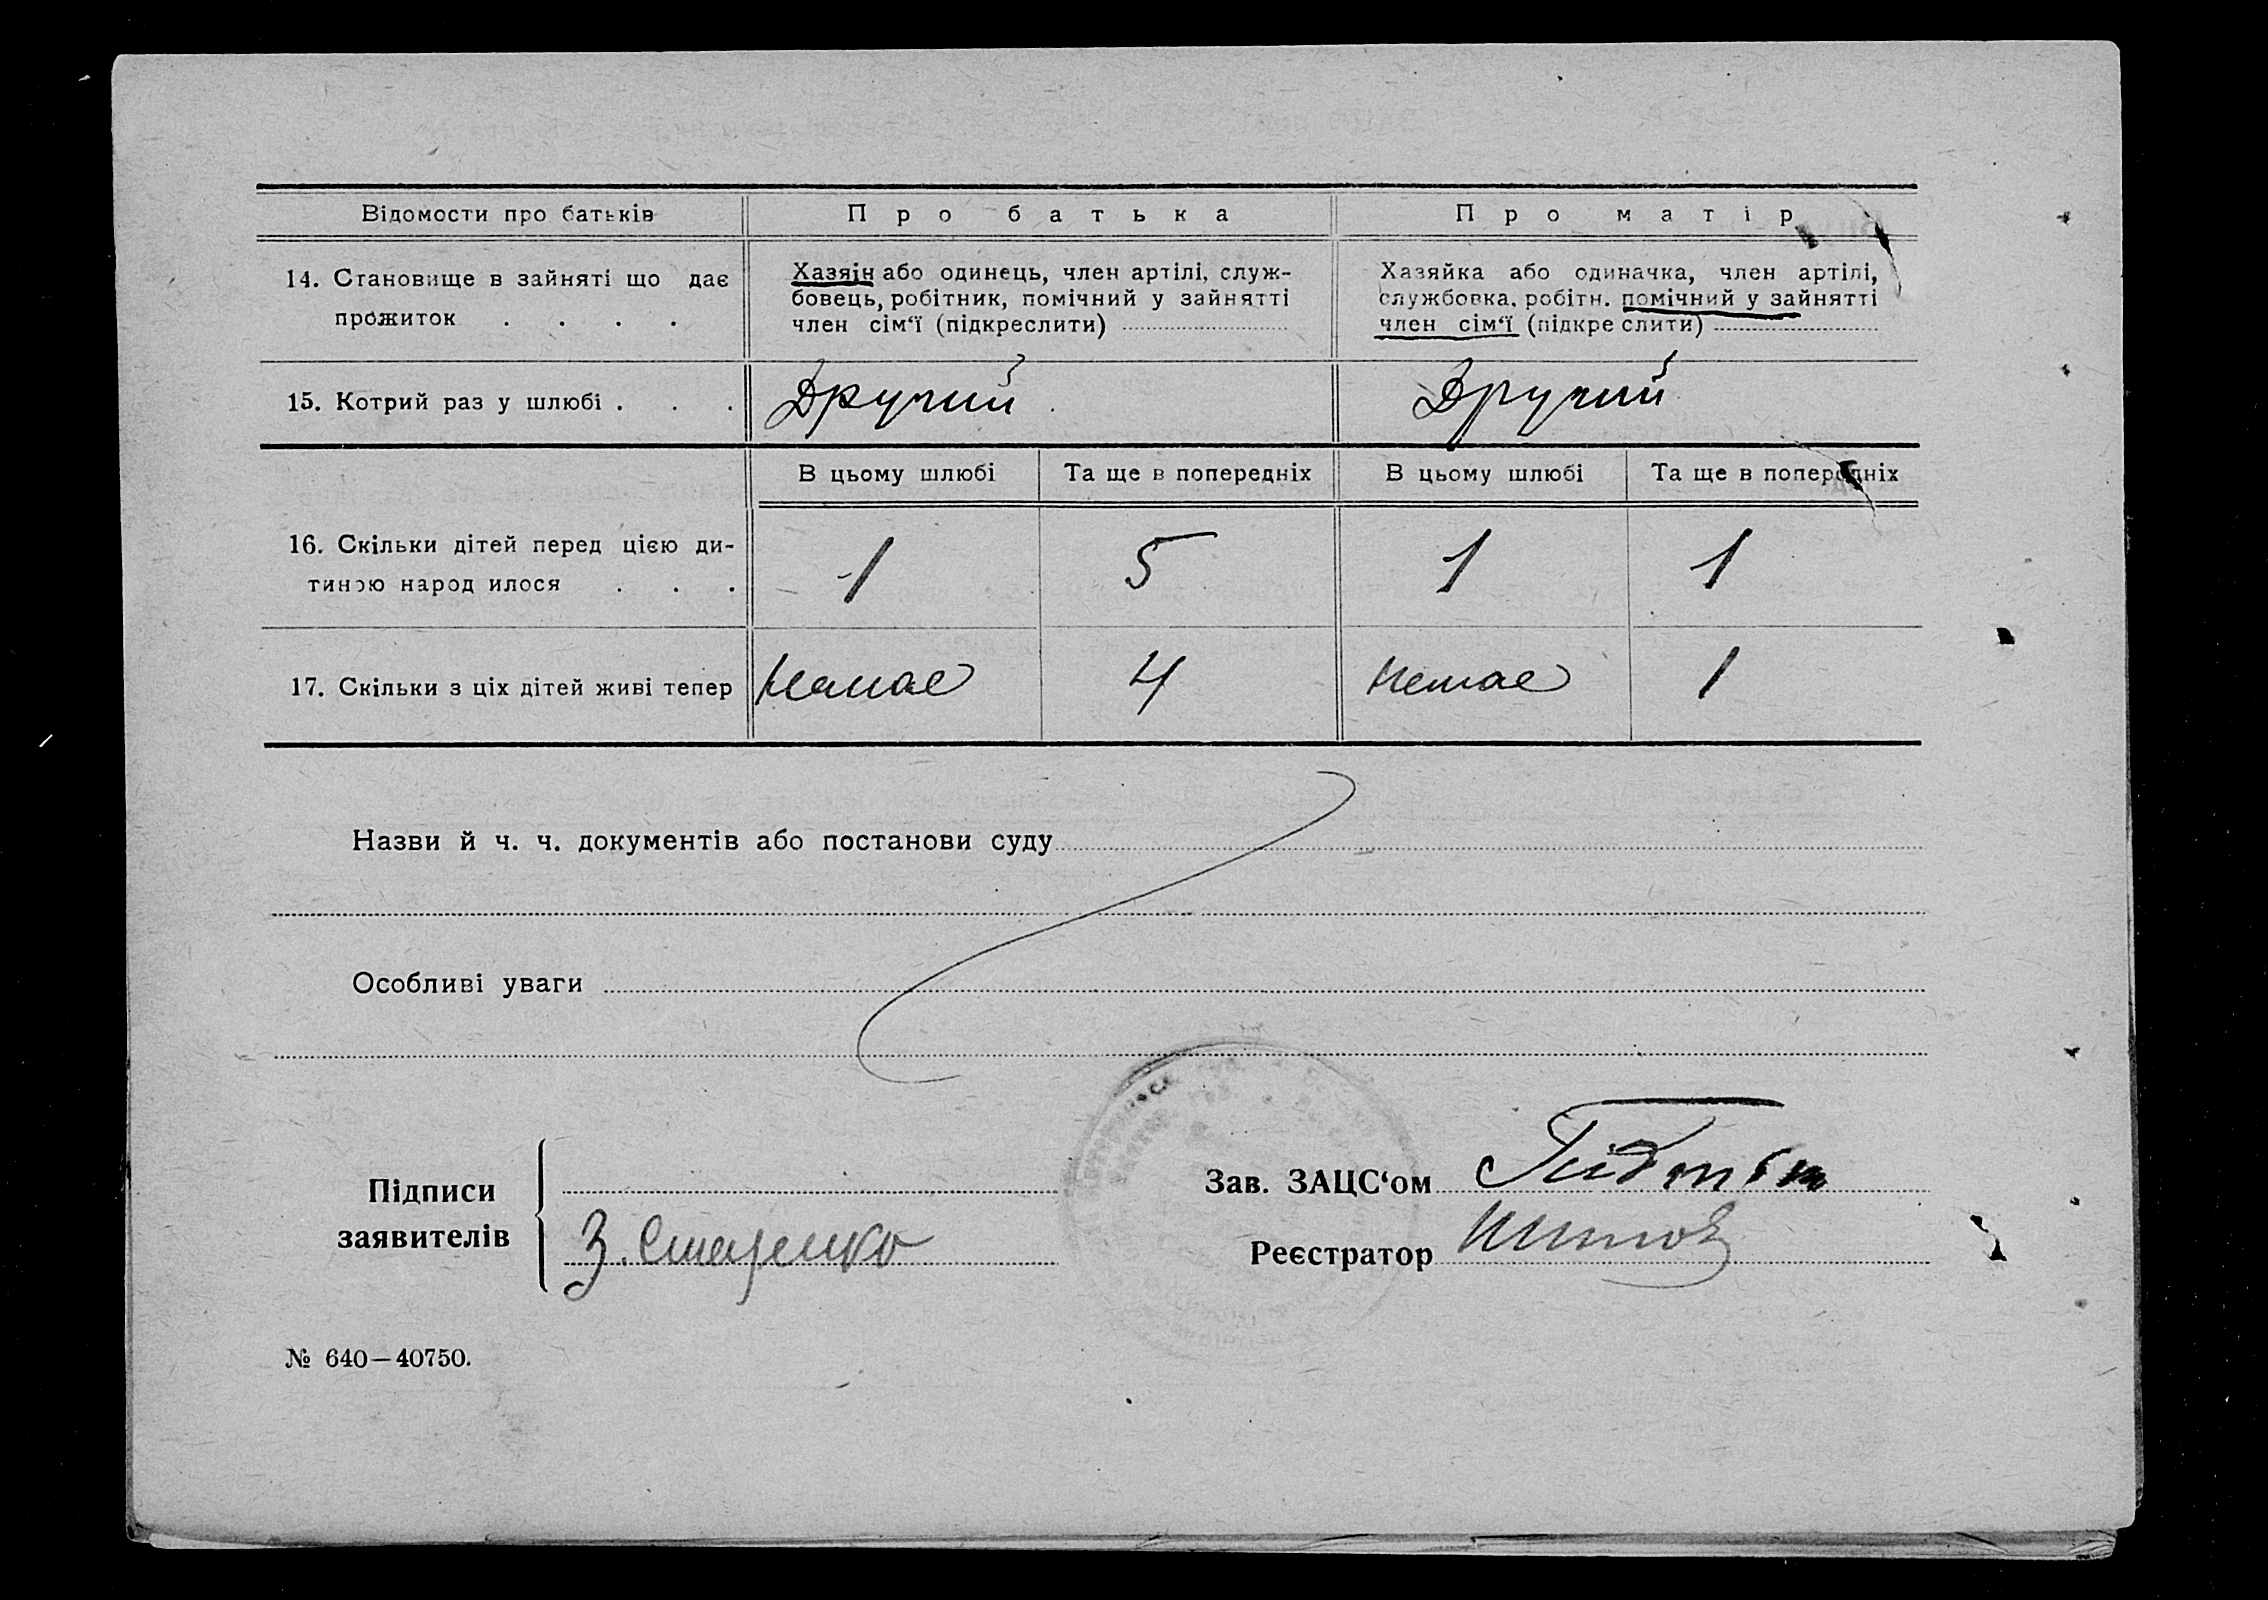 Відомости про батьків Про батька Про матір
14. Становище в зайняті що дає
прожиток . . . .
Хазяїн або одинець, член артілі, служ-
бовець, робітник, помічний у зайнятті
член сім‘ї (підкреслити)
Хазяйка або одиначка, член артілі,
службовка, робітн. помічний у зайнятті
член сім‘ї (підкре слити)
15. Котрий раз у шлюбі . . . Другий Другий
В цьому шлюбі Та ще в попередніх В цьому шлюбі Та ще в попередніх
16. Скільки дітей перед цією ди-
тиною народ илося . . .
1 5 1 1
17. Скільки з ціх дітей живі тепер Немає 4 Немає 1
Назви й ч. ч. документів або постанови суду
Особливі уваги
Підписи
заявителів
З.
Зав. ЗАЦС‘ом
Реєстратор
№ 640—40750.